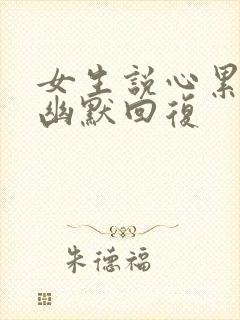 女生説心累
幽默回復
朱德福